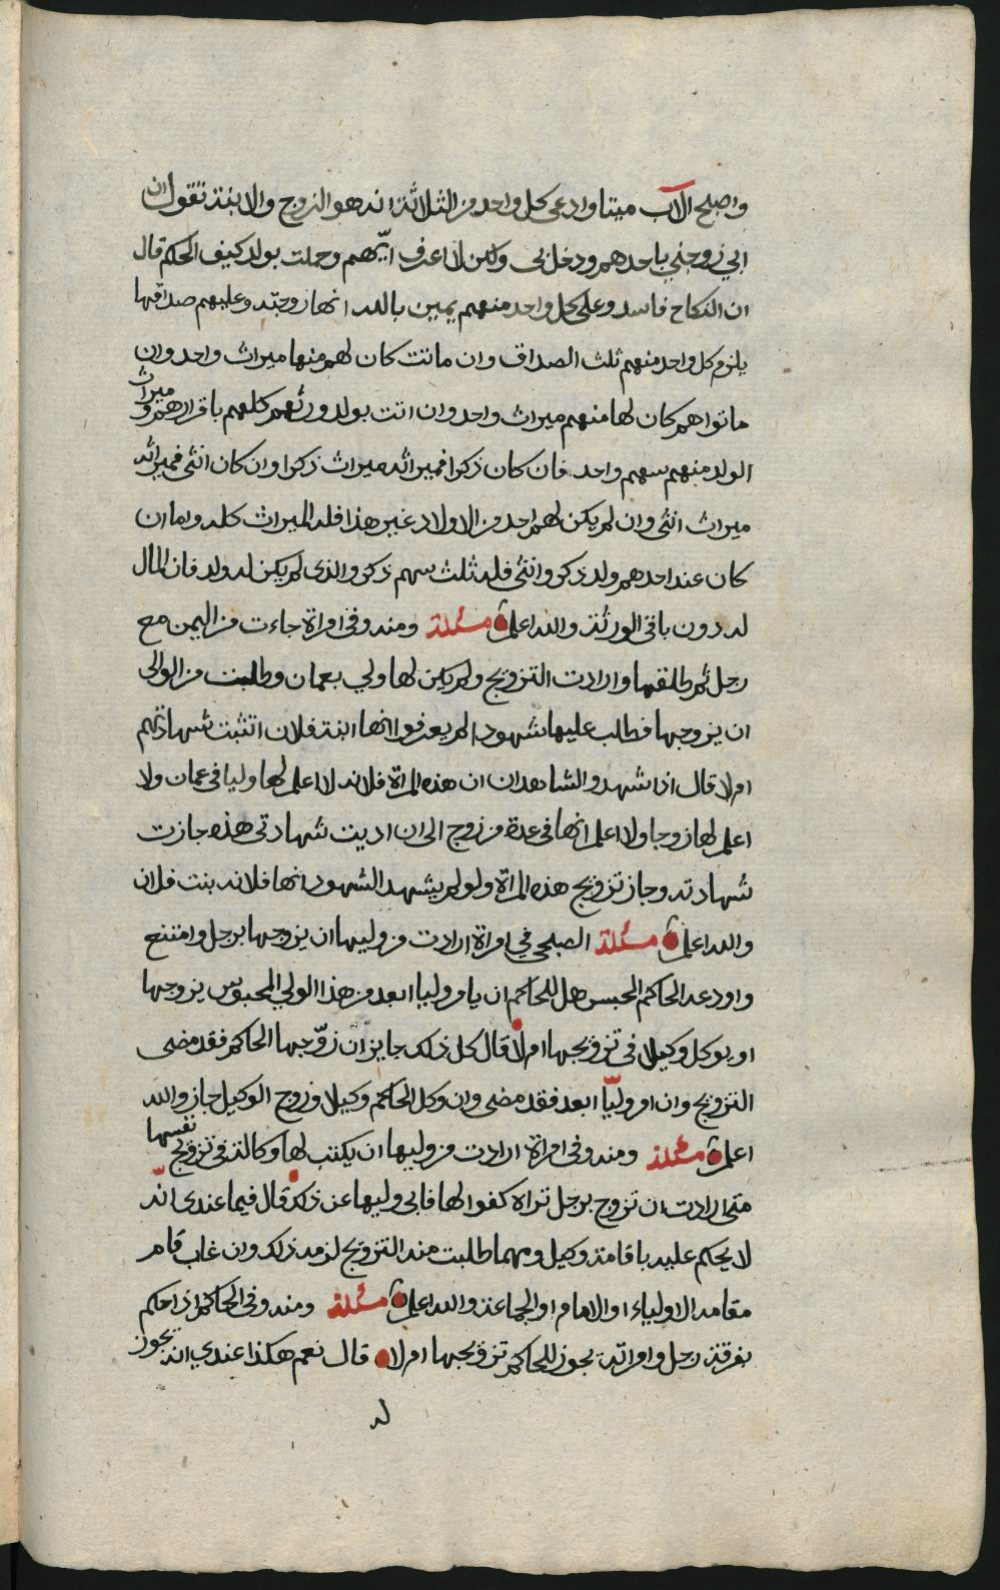 واصبح الآب ميتا وادعى كل واحد من الثلاثة انه هو الزوج والابنة تقول ان
ابي زوجني باحدهم ودخل بي ولكن لا اعرف ايّهم وحملت بولد كيف الحكم قال
ان النكاح فاسد وعلى كل واحد منهم يمين بالله انها زوجته وعليهم صداقها
يلزم كل واحد منهم ثلث الصداق وان ماتت كان لهم منها ميراث واحد وان
ماتوا هم كان لها منهم ميراث واحد وان اتت بولد ورثهم كلهم باقرارهم وميراث
الولد منهم سهم واحد فان كان ذكرا فميراثه ميراث ذكرا وان كان انثى فميراثه
ميراث انثى وان لم يكن لهم احد من الاولاد غير هذا فله الميراث كله واما ان
كان عند احدهم ولد ذكر وانثى فله ثلث سهم ذكر والذى لم يكن له ولد فان المال
له دون باقى الورثة والله اعلم مسئلة ومنه وفى امراة جاءت من اليمن مع
رجل ثم طلقها وارادت التزويج ولم يكن لها ولي بعمان وطلبت من الوالى
ان يزوجها فطلب عليها شهودا لم يعرفوا انها ابنة فلان اتثبت شهادتهم
ام لا قال اذا شهدو الشاهدان ان هذه المراة فلانه لا اعلم لها وليا فى عمان ولا
اعلم لها زوجا ولا اعلم انها فى عدة من زوج الى ان اديت شهادتى هذه جازت
شهادته وجاز تزويج هذه المراة ولو لم يشهد الشهود انها فلانه بنت فلان
والله اعلم مسئلة الصبحي في امراة ارادت من وليها ان يزوجها برجل وامتنع
واودعه الحاكم الحبس هل للحاكم ان يامر وليا ابعد من هذا الولي المحبوس يزوجها
او يوكل وكيلا فى تزويجها ام لا قال كل ذلك جايز ان زوّجها الحاكم فقد مضى
التزويج وان امر وليّا ابعد فقد مضى وان وكل الحاكم وكيلا وزوج الوكيل جاز والله
اعلم مسئلة ومنه وفى امراة ارادت من وليها ان يكتب لها وكالة فى تزويج نفسها
متى ارادت ان تزوج برجل تراه كفوا لها فابى وليها عن ذلك قال فيما عندى انّه
لا يحكم عليه باقامة وكيل ومهما طلبت منه التزويج لزمه ذلك وان غاب قام
مقامه الاولياء او الامام او الجماعة والله اعلم مسئلة ومنه وفى الحاكم اذا حكم
بفرقة رجل وامراته يجوز للحاكم تزويجها ام لا قال نعم هكذا عندي انه يجوز
له